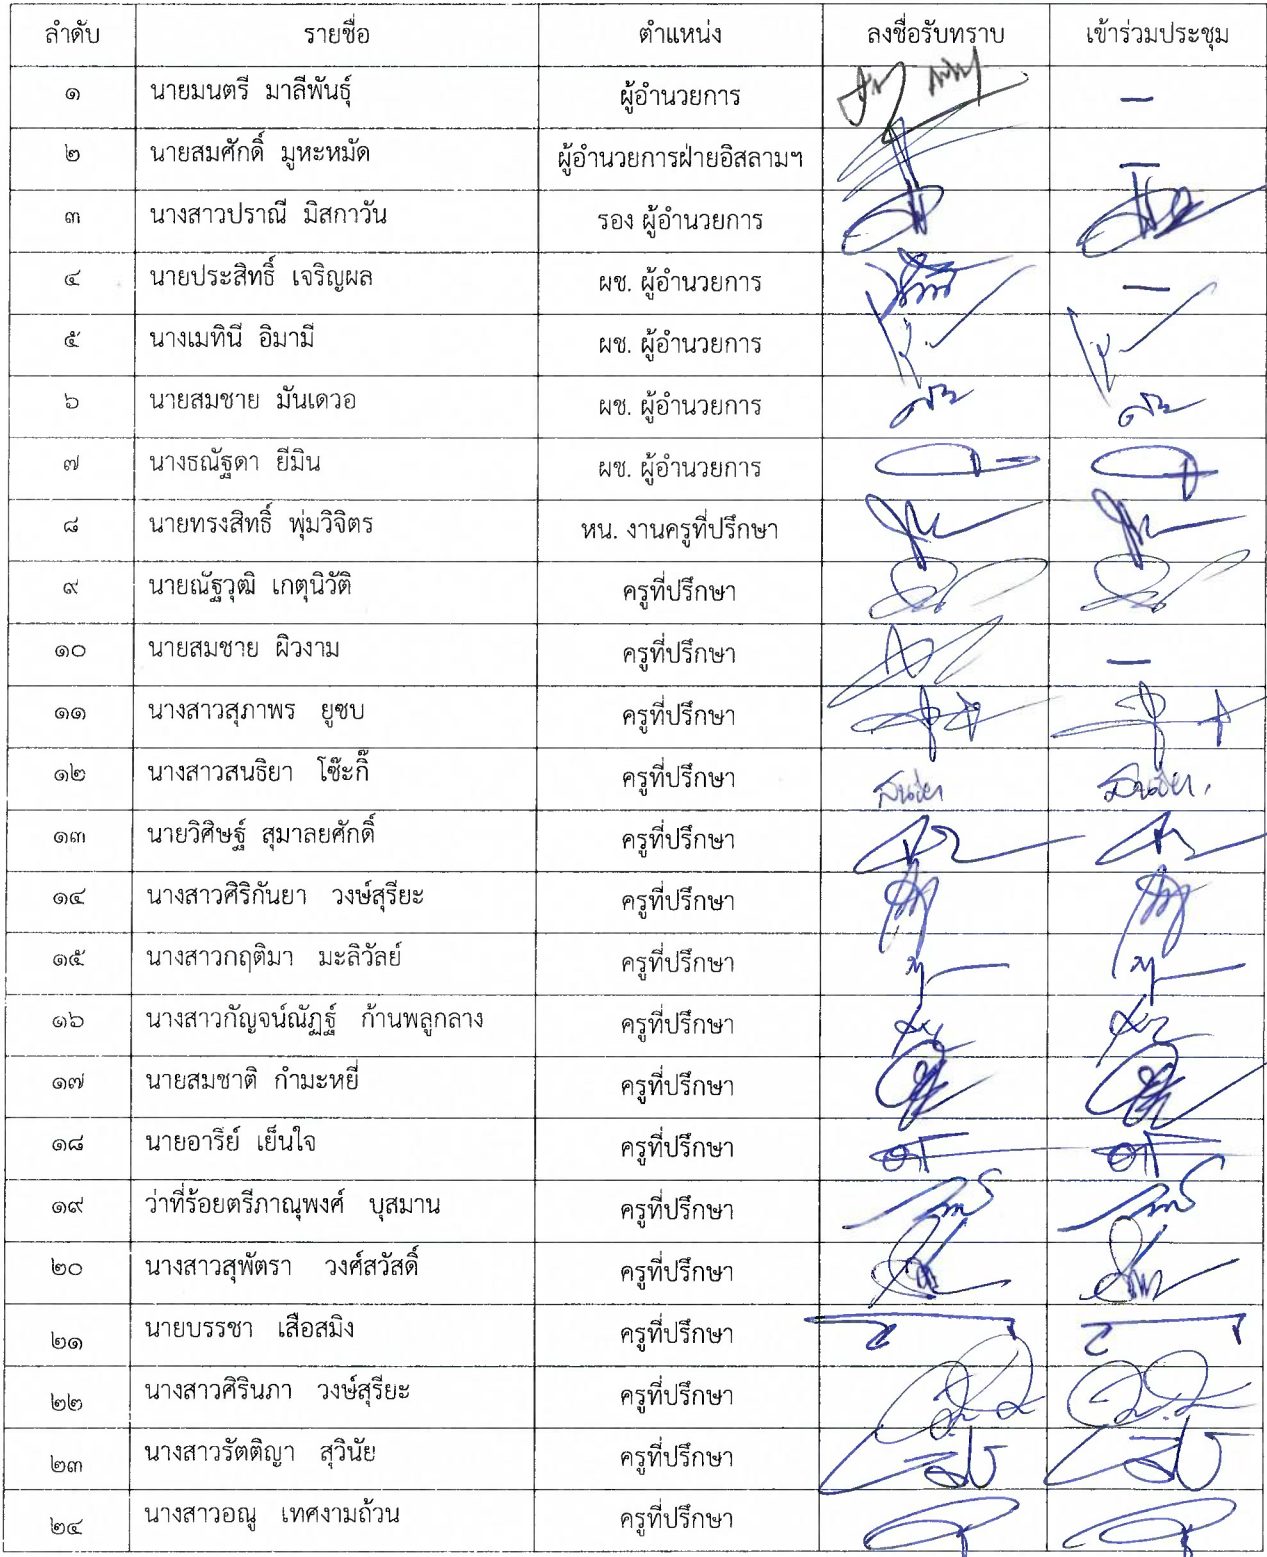 ลำดับ รายชื่อ ตำแหน่ง ลงชื่อรับทราบ เข้าร่วมประชุม
๑ นายมนตรี มาลีพันธุ์ ผู้อำนวยการ –
๒ นายสมศักดิ์ มูหะหมัด ผู้อำนวยการฝ่ายอิสลามฯ –
๓ นางสาวปราณี มิสกาวัน รอง ผู้อำนวยการ
๔ นายประสิทธิ์ เจริญผล ผช. ผู้อำนวยการ –
๕ นางเมทินี อิมามี ผช. ผู้อำนวยการ
๖ นายสมชาย มันเดวอ ผช. ผู้อำนวยการ
๗ นางธณัฐดา ยีมิน ผช. ผู้อำนวยการ
๘ นายทรงสิทธิ์ พุ่มวิจิตร หน. งานครูที่ปรึกษา
๙ นายณัฐวุฒิ เกตุนิวัติ ครูที่ปรึกษา
๑๐ นายสมชาย ผิวงาม ครูที่ปรึกษา –
๑๑ นางสาวสุภาพร ยูซบ ครูที่ปรึกษา
๑๒ นางสาวสนธิยา โซ๊ะกี๊ ครูที่ปรึกษา สนธิยา สนธิยา
๑๓ นายวิศิษฐ์ สุมาลยศักดิ์ ครูที่ปรึกษา
๑๔ นางสาวศิริกันยา วงษ์สุรียะ ครูที่ปรึกษา
๑๕ นางสาวกฤติมา มะลิวัลย์ ครูที่ปรึกษา
๑๖ นางสาวกัญจน์ณัฏฐ์ ก้านพลูกลาง ครูที่ปรึกษา
๑๗ นายสมชาติ กำมะหยี่ ครูที่ปรึกษา
๑๘ นายอารีย์ เย็นใจ ครูที่ปรึกษา
๑๙ ว่าที่ร้อยตรีภาณุพงศ์ บุสมาน ครูที่ปรึกษา
๒๐ นางสาวสุพัตรา วงศ์สวัสดิ์ ครูที่ปรึกษา
๒๑ นายบรรชา เสือสมิง ครูที่ปรึกษา
๒๒ นางสาวศิรินภา วงษ์สุรียะ ครูที่ปรึกษา
๒๓ นางสาวรัตติญา สุวินัย ครูที่ปรึกษา
๒๔ นางสาวอณู เทศงามถ้วน ครูที่ปรึกษา